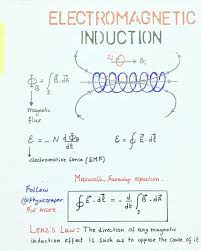 ELECTROMAGNETIC
INDUCTION
I B_i
Φ_B = ∫_S B⃗ · dA⃗
magnetic
flux
Ɛ = -N dΦ_B/dt
Ɛ = ∮ E⃗ · dℓ⃗
electromotive force (EMF)
Maxwell-Faraday equation
Follow
For more
∮ E⃗ · dℓ⃗ = - d/dt ∫_S B⃗ · dA⃗
Lenz's Law: The direction of any magnetic
induction effect is such as to oppose the cause of it